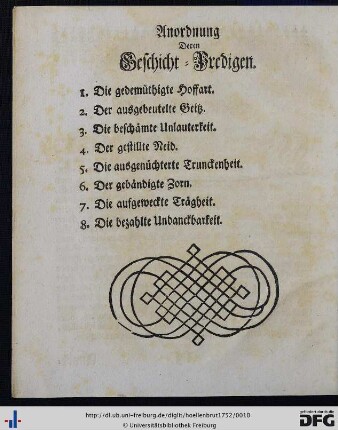 Anordnung
Deren
Geschicht-Predigen.
1. Die gedemüthigte Hoffart.
2. Der ausgebeutelte Geitz.
3. Die beschämte Unlauterkeit.
4. Der gestillte Neid.
5. Die ausgenüchterte Trunckenheit.
6. Der gebändigte Zorn.
7. Die aufgeweckte Trägheit.
8. Die bezahlte Undanckbarkeit.
http://dl.ub.uni-freiburg.de/diglit/hoellenbrut1752/0010
© Universitätsbibliothek Freiburg
gefördert durch die
DFG